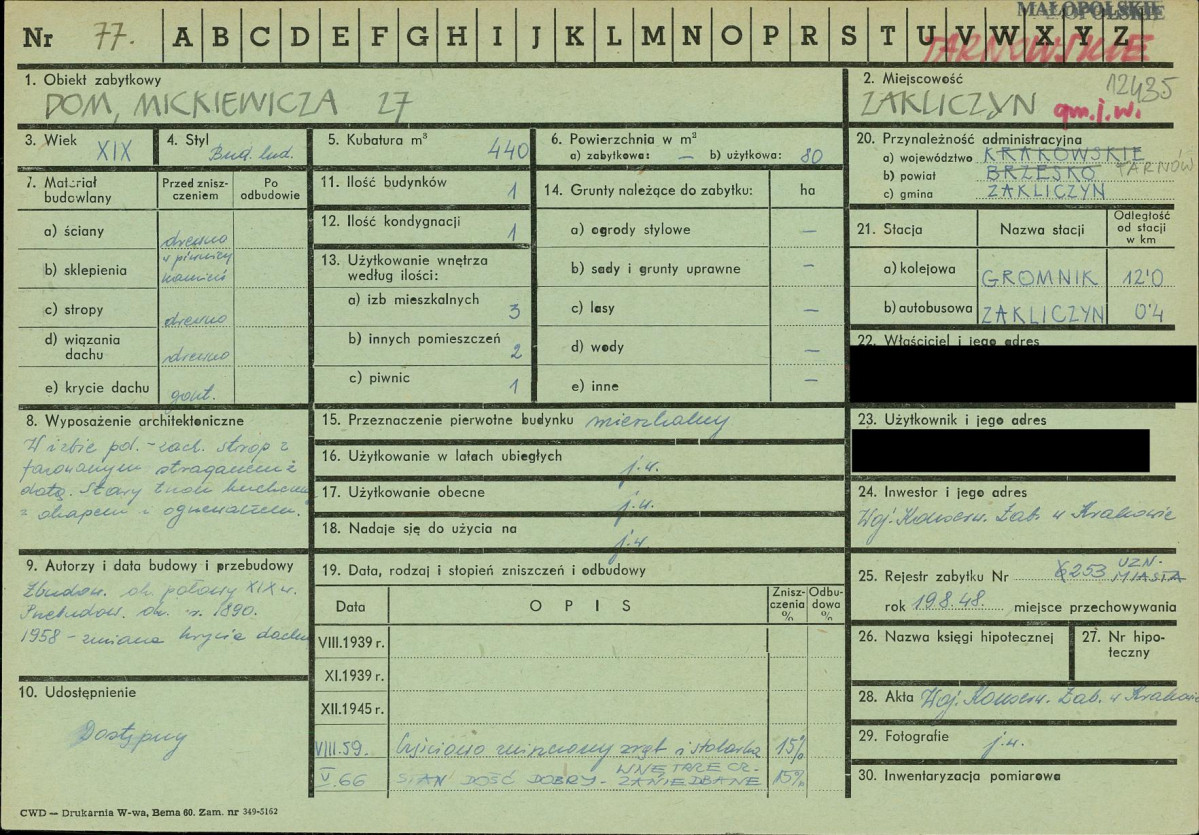 MAŁOPOLSKIE
Nr 77. A B C D E F G H I J K L M N O P R S T U V W X Y Z
TARNOWSKIE
1. Obiekt zabytkowy
DOM, MICKIEWICZA 27
2. Miejscowość
12435
ZAKLICZYN gm.j.w.
3. Wiek XIX
4. Styl Bud. lud.
5. Kubatura m³ 440
6. Powierzchnia w m²
a) zabytkowa: — b) użytkowa: 80
20. Przynależność administracyjna
a) województwo KRAKOWSKIE
TARNÓW
b) powiat BRZESKO
c) gmina ZAKLICZYN
7. Materiał budowlany
Przed zniszczeniem
Po odbudowie
a) ściany drewno
b) sklepienia w piwnicy kamień
c) stropy drewno
d) wiązania dachu drewno
e) krycie dachu gont.
11. Ilość budynków 1
12. Ilość kondygnacji 1
13. Użytkowanie wnętrza według ilości:
a) izb mieszkalnych 3
b) innych pomieszczeń 2
c) piwnic 1
14. Grunty należące do zabytku: ha
a) ogrody stylowe —
b) sady i grunty uprawne —
c) lasy —
d) wody —
e) inne —
21. Stacja Nazwa stacji Odległość od stacji w km
a) kolejowa GROMNIK 12'0
b) autobusowa ZAKLICZYN 0'4
22. Właściciel i jego adres
8. Wyposażenie architektoniczne
W izbie pd.-zach. strop z
fazowanym stragarzem z
datą. Stary tron kuchenny
z okapem i
9. Autorzy i data budowy i przebudowy
Zbudow. ok. połowy XIX w.
Przebudow. ok. r. 1890.
1958 - zmiana krycia dachu
10. Udostępnienie
Dostępny
15. Przeznaczenie pierwotne budynku mieszkalny
16. Użytkowanie w latach ubiegłych j.w.
17. Użytkowanie obecne j.w.
18. Nadaje się do użycia na j.w.
19. Data, rodzaj i stopień zniszczeń i odbudowy
Data OPIS Zniszczenia % Odbudowa %
VIII.1939 r.
XI.1939 r.
XII.1945 r.
VIII.59. Częściowo zniszczony zrąb i stolarka 15%
V.66 STAN DOŚĆ DOBRY - WNĘTRZE CZ. ZANIEDBANE 15%
23. Użytkownik i jego adres
24. Inwestor i jego adres
Woj. Konserw. Zab. w Krakowie
25. Rejestr zabytku Nr 253 UZN. MIASTA
rok 19.8.48. miejsce przechowywania
26. Nazwa księgi hipotecznej
27. Nr hipoteczny
28. Akta Woj. Konserw. Zab. w Krakowie
29. Fotografie j.w.
30. Inwentaryzacja pomiarowa
CWD — Drukarnia W-wa, Bema 60. Zam. nr 349-5162